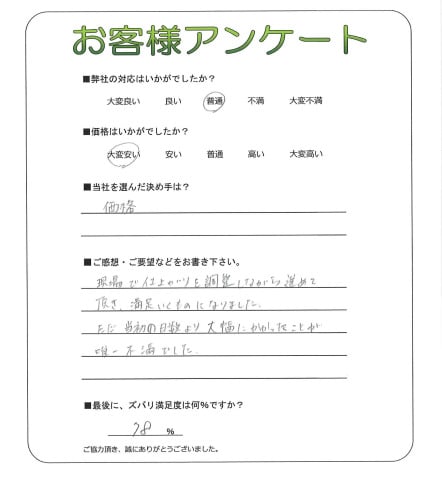 お客様アンケート
■弊社の対応はいかがでしたか？
大変良い 良い 普通 不満 大変不満
■価格はいかがでしたか？
大変安い 安い 普通 高い 大変高い
■当社を選んだ決め手は？
価格
■ご感想・ご要望などをお書き下さい。
現場で仕上がりを調整しながら進めて
頂き、満足いくものになりました。
ただ当初の日数より大幅にかかったことが
唯一不満でした。
■最後に、ズバリ満足度は何%ですか？
78 %
ご協力頂き、誠にありがとうございました。